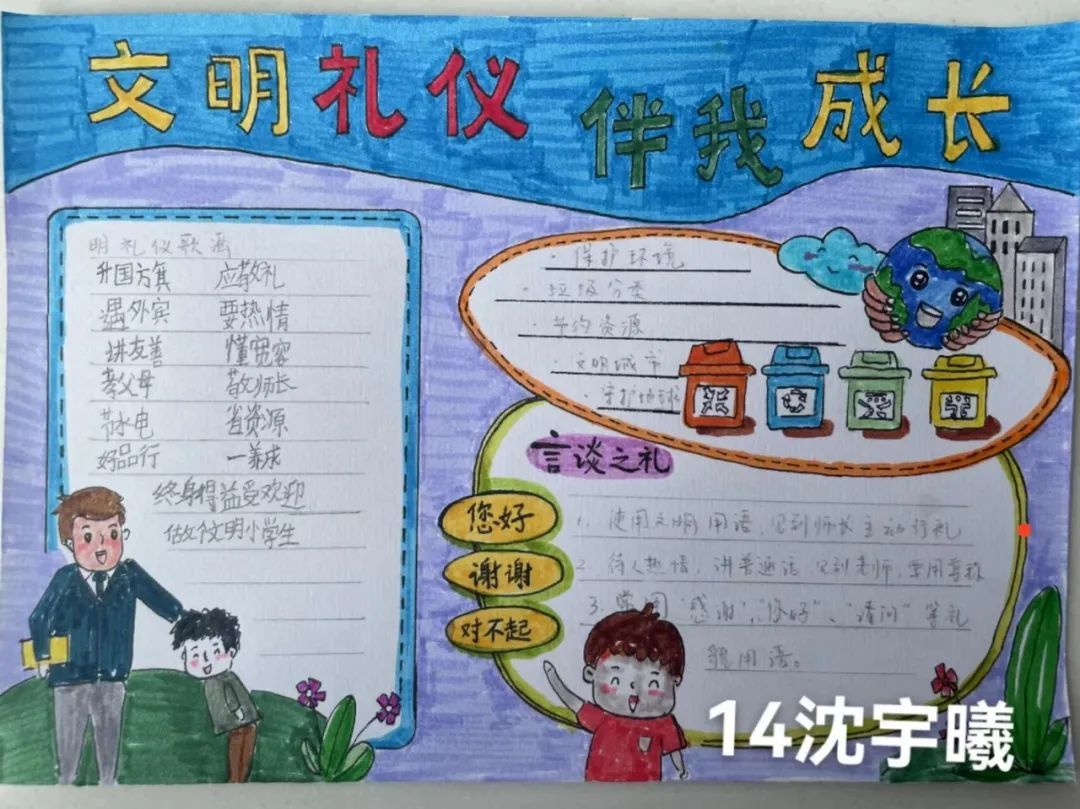 文明礼仪伴我成长
明礼仪歌谣
升国旗 应敬礼
遇外宾 要热情
讲友善 懂宽容
孝父母 敬师长
节水电 省资源
好品行 一养成
终身得益受欢迎
做个文明小学生
·保护环境
·垃圾分类
·节约资源
·文明城市
·守护地球
言谈之礼
您好
谢谢
对不起
1. 使用文明用语,见到师长主动行礼
2. 待人热情,讲普通话,见到老师,要用尊称
3. 常用"感谢","您好"、"请问"等礼
貌用语。
14沈宇曦